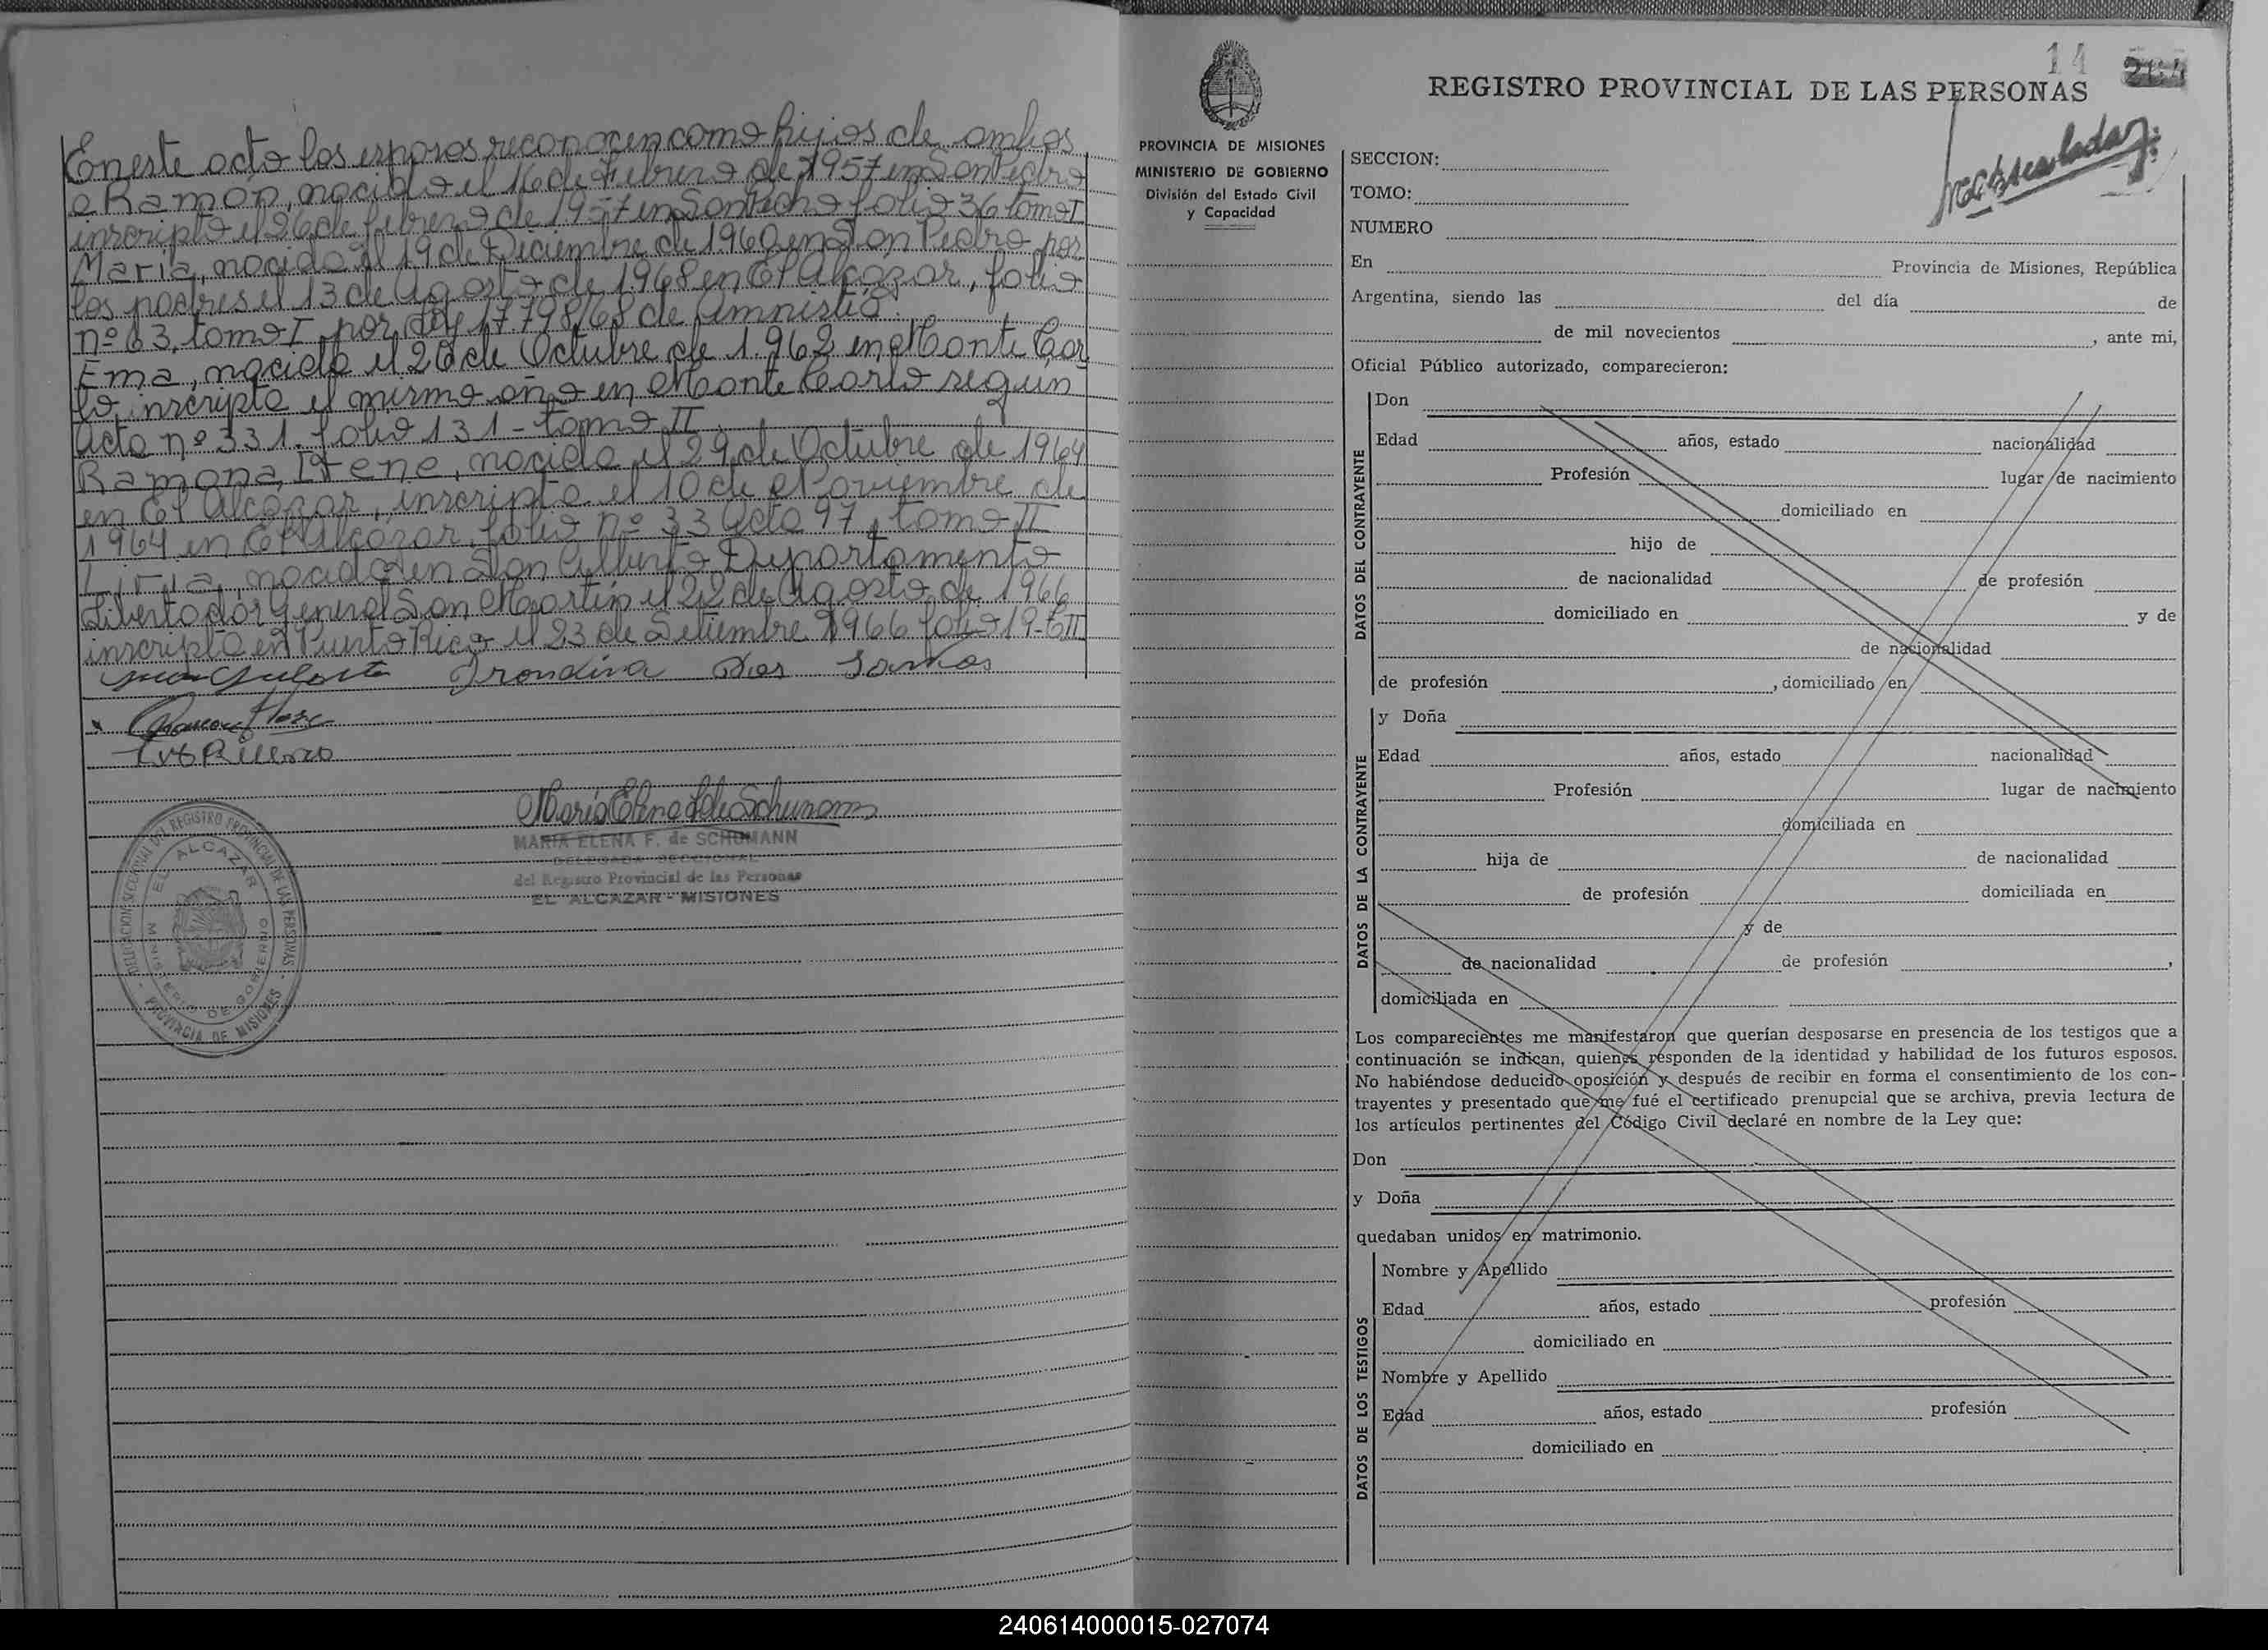 En este acto los esposos reconocen como hijos de ambos
a Ramón, nacido el 16 de Febrero de 1957 en San Pedro
inscripto el 26 de febrero de 1957 en San Pedro folio 36 tomo I
María, nacida el 19 de Diciembre de 1960 en San Pedro por
los padres el 13 de Agosto de 1968 en El Alcázar, folio
nº 63, tomo I por Ley 17.798/68 de Amnistía.
Ema, nacida el 20 de Octubre de 1.962 en Monte Car
lo, inscripta el mismo año en Monte Carlo según
acta nº 331. folio 131 - tomo II
Ramona Irene, nacida el 29 de Octubre de 1964
en El Alcázar, inscripta el 10 de Noviembre de
1964 en El Alcázar folio nº 33 acta 97, tomo II
nacida en San Alberto Departamento
Libertador General San Martín el 22 de Agosto de 1966
inscripta en Puerto Rico el 23 de Setiembre 1966 folio 19-TII
Irondina Dos Santos
María Elena F de Schumann
MARIA ELENA F. de SCHUMANN
DELEGADA SECCIONAL
del Registro Provincial de las Personas
EL ALCAZAR - MISIONES
DELEGACION SECCIONAL DEL REGISTRO PROVINCIAL DE LAS PERSONAS
PROVINCIA DE MISIONES
EL ALCAZAR
MINISTERIO DE GOBIERNO
14
REGISTRO PROVINCIAL DE LAS PERSONAS
PROVINCIA DE MISIONES
MINISTERIO DE GOBIERNO
División del Estado Civil
y Capacidad
SECCION:
TOMO:
NUMERO
En Provincia de Misiones, República
Argentina, siendo las del día de
de mil novecientos , ante mi,
Oficial Público autorizado, comparecieron:
DATOS DEL CONTRAYENTE
Don
Edad años, estado nacionalidad
Profesión lugar de nacimiento
domiciliado en
hijo de
de nacionalidad de profesión
domiciliado en y de
de nacionalidad
de profesión , domiciliado en
DATOS DE LA CONTRAYENTE
y Doña
Edad años, estado nacionalidad
Profesión lugar de nacimiento
domiciliada en
hija de de nacionalidad
de profesión domiciliada en
y de
de nacionalidad de profesión ,
domiciliada en
Los comparecientes me manifestaron que querían desposarse en presencia de los testigos que a
continuación se indican, quienes responden de la identidad y habilidad de los futuros esposos.
No habiéndose deducido oposición y después de recibir en forma el consentimiento de los con-
trayentes y presentado que me fué el certificado prenupcial que se archiva, previa lectura de
los artículos pertinentes del Código Civil declaré en nombre de la Ley que:
Don
y Doña
quedaban unidos en matrimonio.
DATOS DE LOS TESTIGOS
Nombre y Apellido
Edad años, estado profesión
domiciliado en
Nombre y Apellido
Edad años, estado profesión
domiciliado en
240614000015-027074